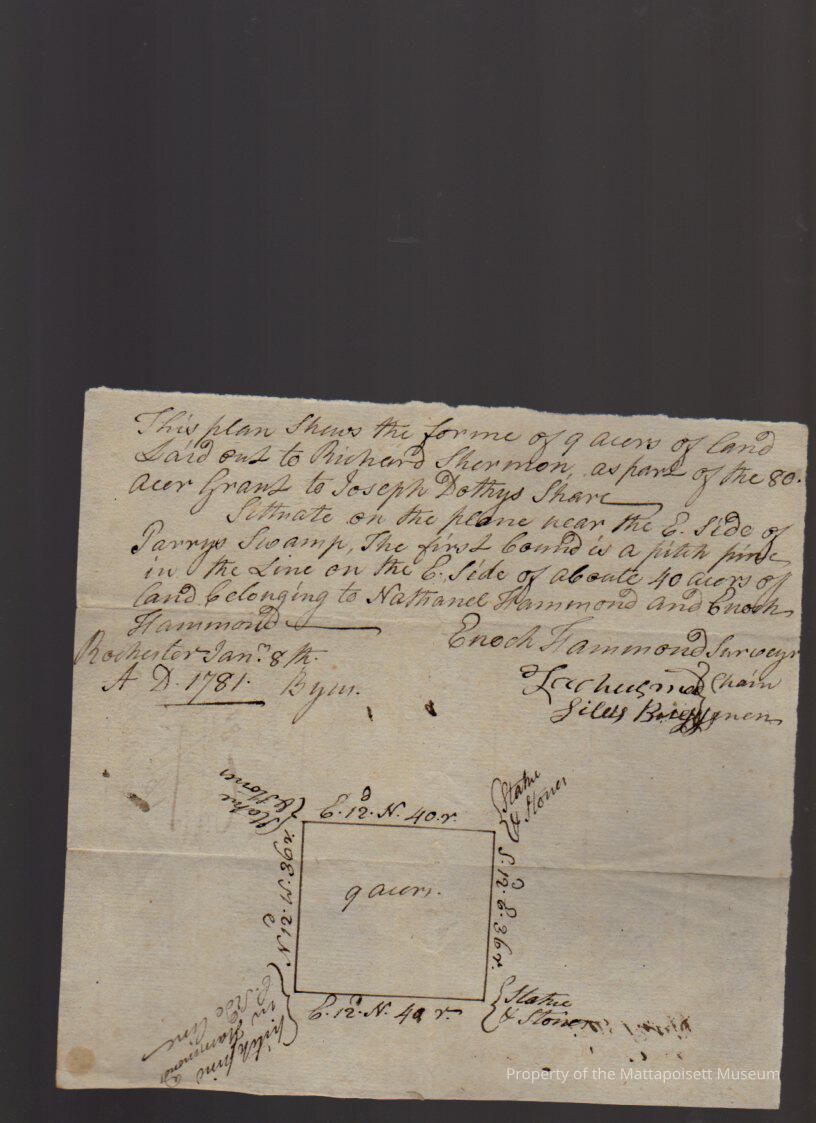 This plan Shews the forme of 9 acers of land
Laid out to Richard Shermon, as part of the 80.
acer Grant to Joseph Dothys Share
Sittuate on the plane near the E. Side of
Parrys Swamp, The first bound is a pitch pine
in the Line on the E. Side of aboute 40 acers of
land belonging to Nathanel Hammond and Enoch
Hammond
Enoch Hammond Surveyr
Rochester Janry 8th.
A D. 1781. By me.
Chain
Silas Briggs men
Stake
& Stones
E. 12d. N. 40. r.
Stake
& Stones
N 12d W. 36 r
9 acers.
S. 12d. E. 36 r.
pitch pine
in Hammonds
E. Side Line
E. 12d. N. 40 r.
Stake
& Stones
Property of the Mattapoisett Museum